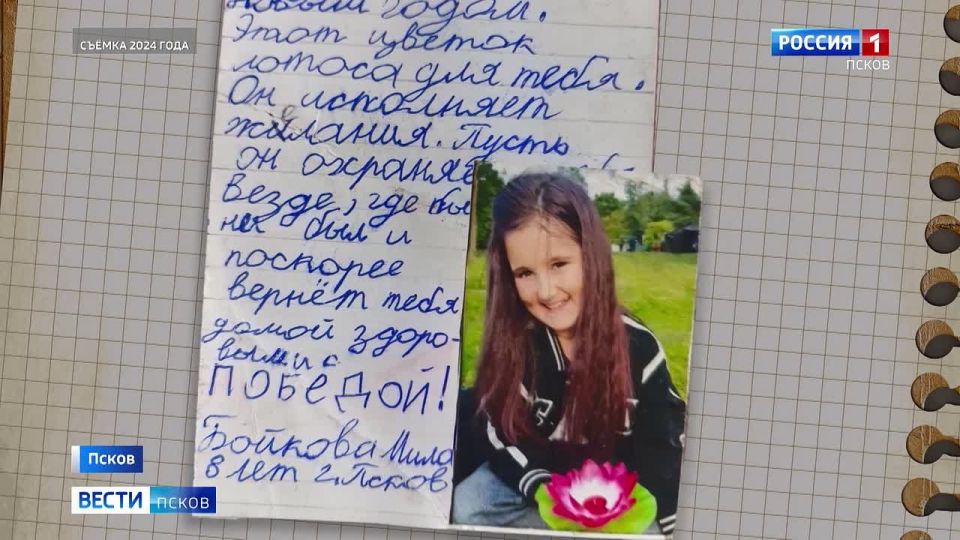 СЪЁМКА 2024 ГОДА
РОССИЯ 1
ПСКОВ
Новым годом.
Этот цветок
лотоса для тебя.
Он исполняет
желания. Пусть
он охраняе
везде, где ты
не был и
поскорее
вернёт тебя
домой здоро-
вым и с
ПОБЕДОЙ!
Бойкова Мила
8 лет г. Псков
Псков
ВЕСТИ ПСКОВ